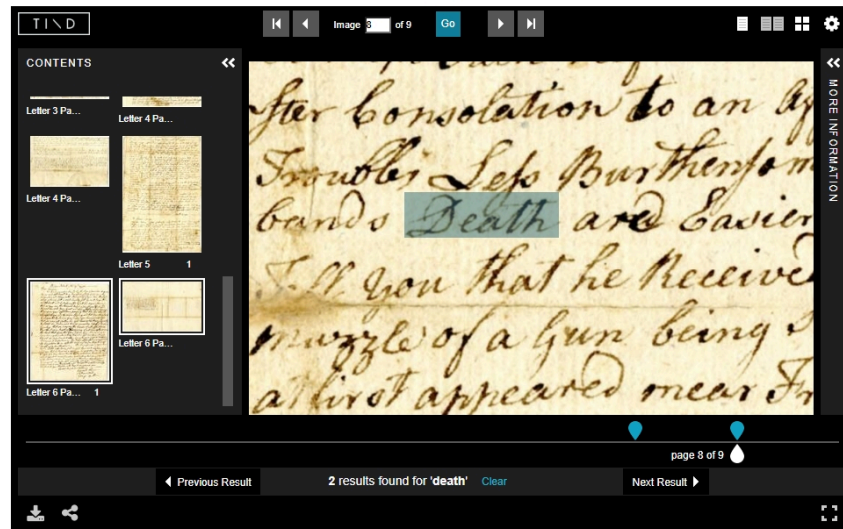 TIND
Image 8 of 9 Go
CONTENTS
MORE INFORMATION
Letter 3 Pa...
Letter 4 Pa...
Letter 4 Pa...
Letter 5 1
Letter 6 Pa... 1
Letter 6 Pa...
fter Consolation to an
Troubles Less Burthensom
bands Death are Easier
Tell you that he Receive
muzzle of a Gun being
at first appeared near
page 8 of 9
Previous Result
2 results found for 'death' Clear
Next Result